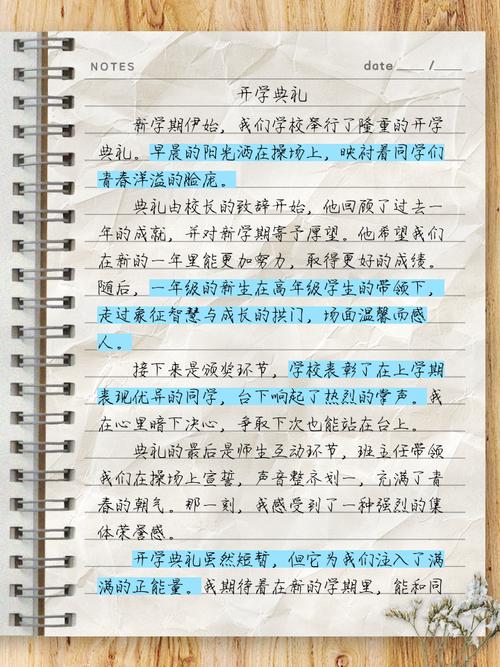 NOTES date____ /____
开学典礼
新学期伊始，我们学校举行了隆重的开学
典礼。早晨的阳光洒在操场上，映衬着同学们
青春洋溢的脸庞。
典礼由校长的致辞开始，他回顾了过去一
年的成就，并对新学期寄予厚望。他希望我们
在新的一年里能更加努力，取得更好的成绩。
随后，一年级的新生在高年级学生的带领下，
走过象征智慧与成长的拱门，场面温馨而感
人。
接下来是颁奖环节，学校表彰了在上学期
表现优异的同学，台下响起了热烈的掌声。我
在心里暗下决心，争取下次也能站在台上。
典礼的最后是师生互动环节，班主任带领
我们在操场上宣誓，声音整齐划一，充满了青
春的朝气。那一刻，我感受到了一种强烈的集
体荣誉感。
开学典礼虽然短暂，但它为我们注入了满
满的正能量。我期待着在新的学期里，能和同